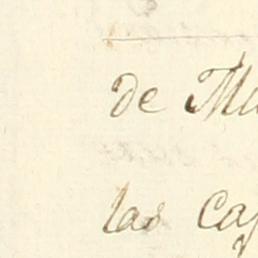 de Mu
las cap